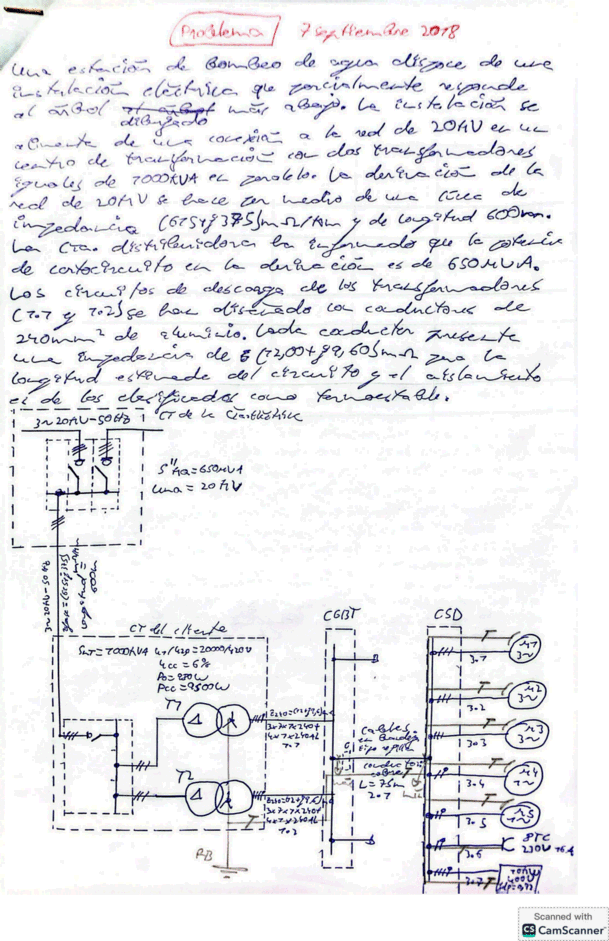 Problema 7 septiembre 2018
Una estación de Bombeo de agua dispone de una
instalación eléctrica que parcialmente responde
al árbol dibujado más abajo. La instalación se
alimenta de una conexión a la red de 20kV en un
centro de transformación con dos transformadores
iguales de 1000kVA en paralelo. La derivación de la
red de 20kV se hace por medio de una línea de
impedancia (675+j375)mΩ/km y de longitud 600m.
La Cía. distribuidora ha informado que la potencia
de cortocircuito en la derivación es de 650MVA.
Los circuitos de descarga de los transformadores
(1.1 y 1.2) se han diseñado con conductores de
240mm² de aluminio. Cada conductor presente
una impedancia de (12,00+j9,60)mΩ para la
longitud estimada del circuito y el aislamiento
es de los clasificados como termoestable.
3~20kV-50Hz
CT de la Cía eléctrica
S"kQ=650MVA
UnQ=20kV
3~20kV-50Hz
longitud=
600m
CT del cliente
SnT=1000kVA U1/U2=20000/420V
Ucc=6%
Pcc=9500W
T1
T2
1.1
RB
CGBT
cables
en bandeja
conductor
cobre
L=75m
2.1
CSD
3.1
M1
3~
3.2
M2
3~
3.3
M3
3~
3.4
M4
1~
3.5
M5
1~
3.6
8TC
230V 16A
3.7
400V
Scanned with
CS CamScanner